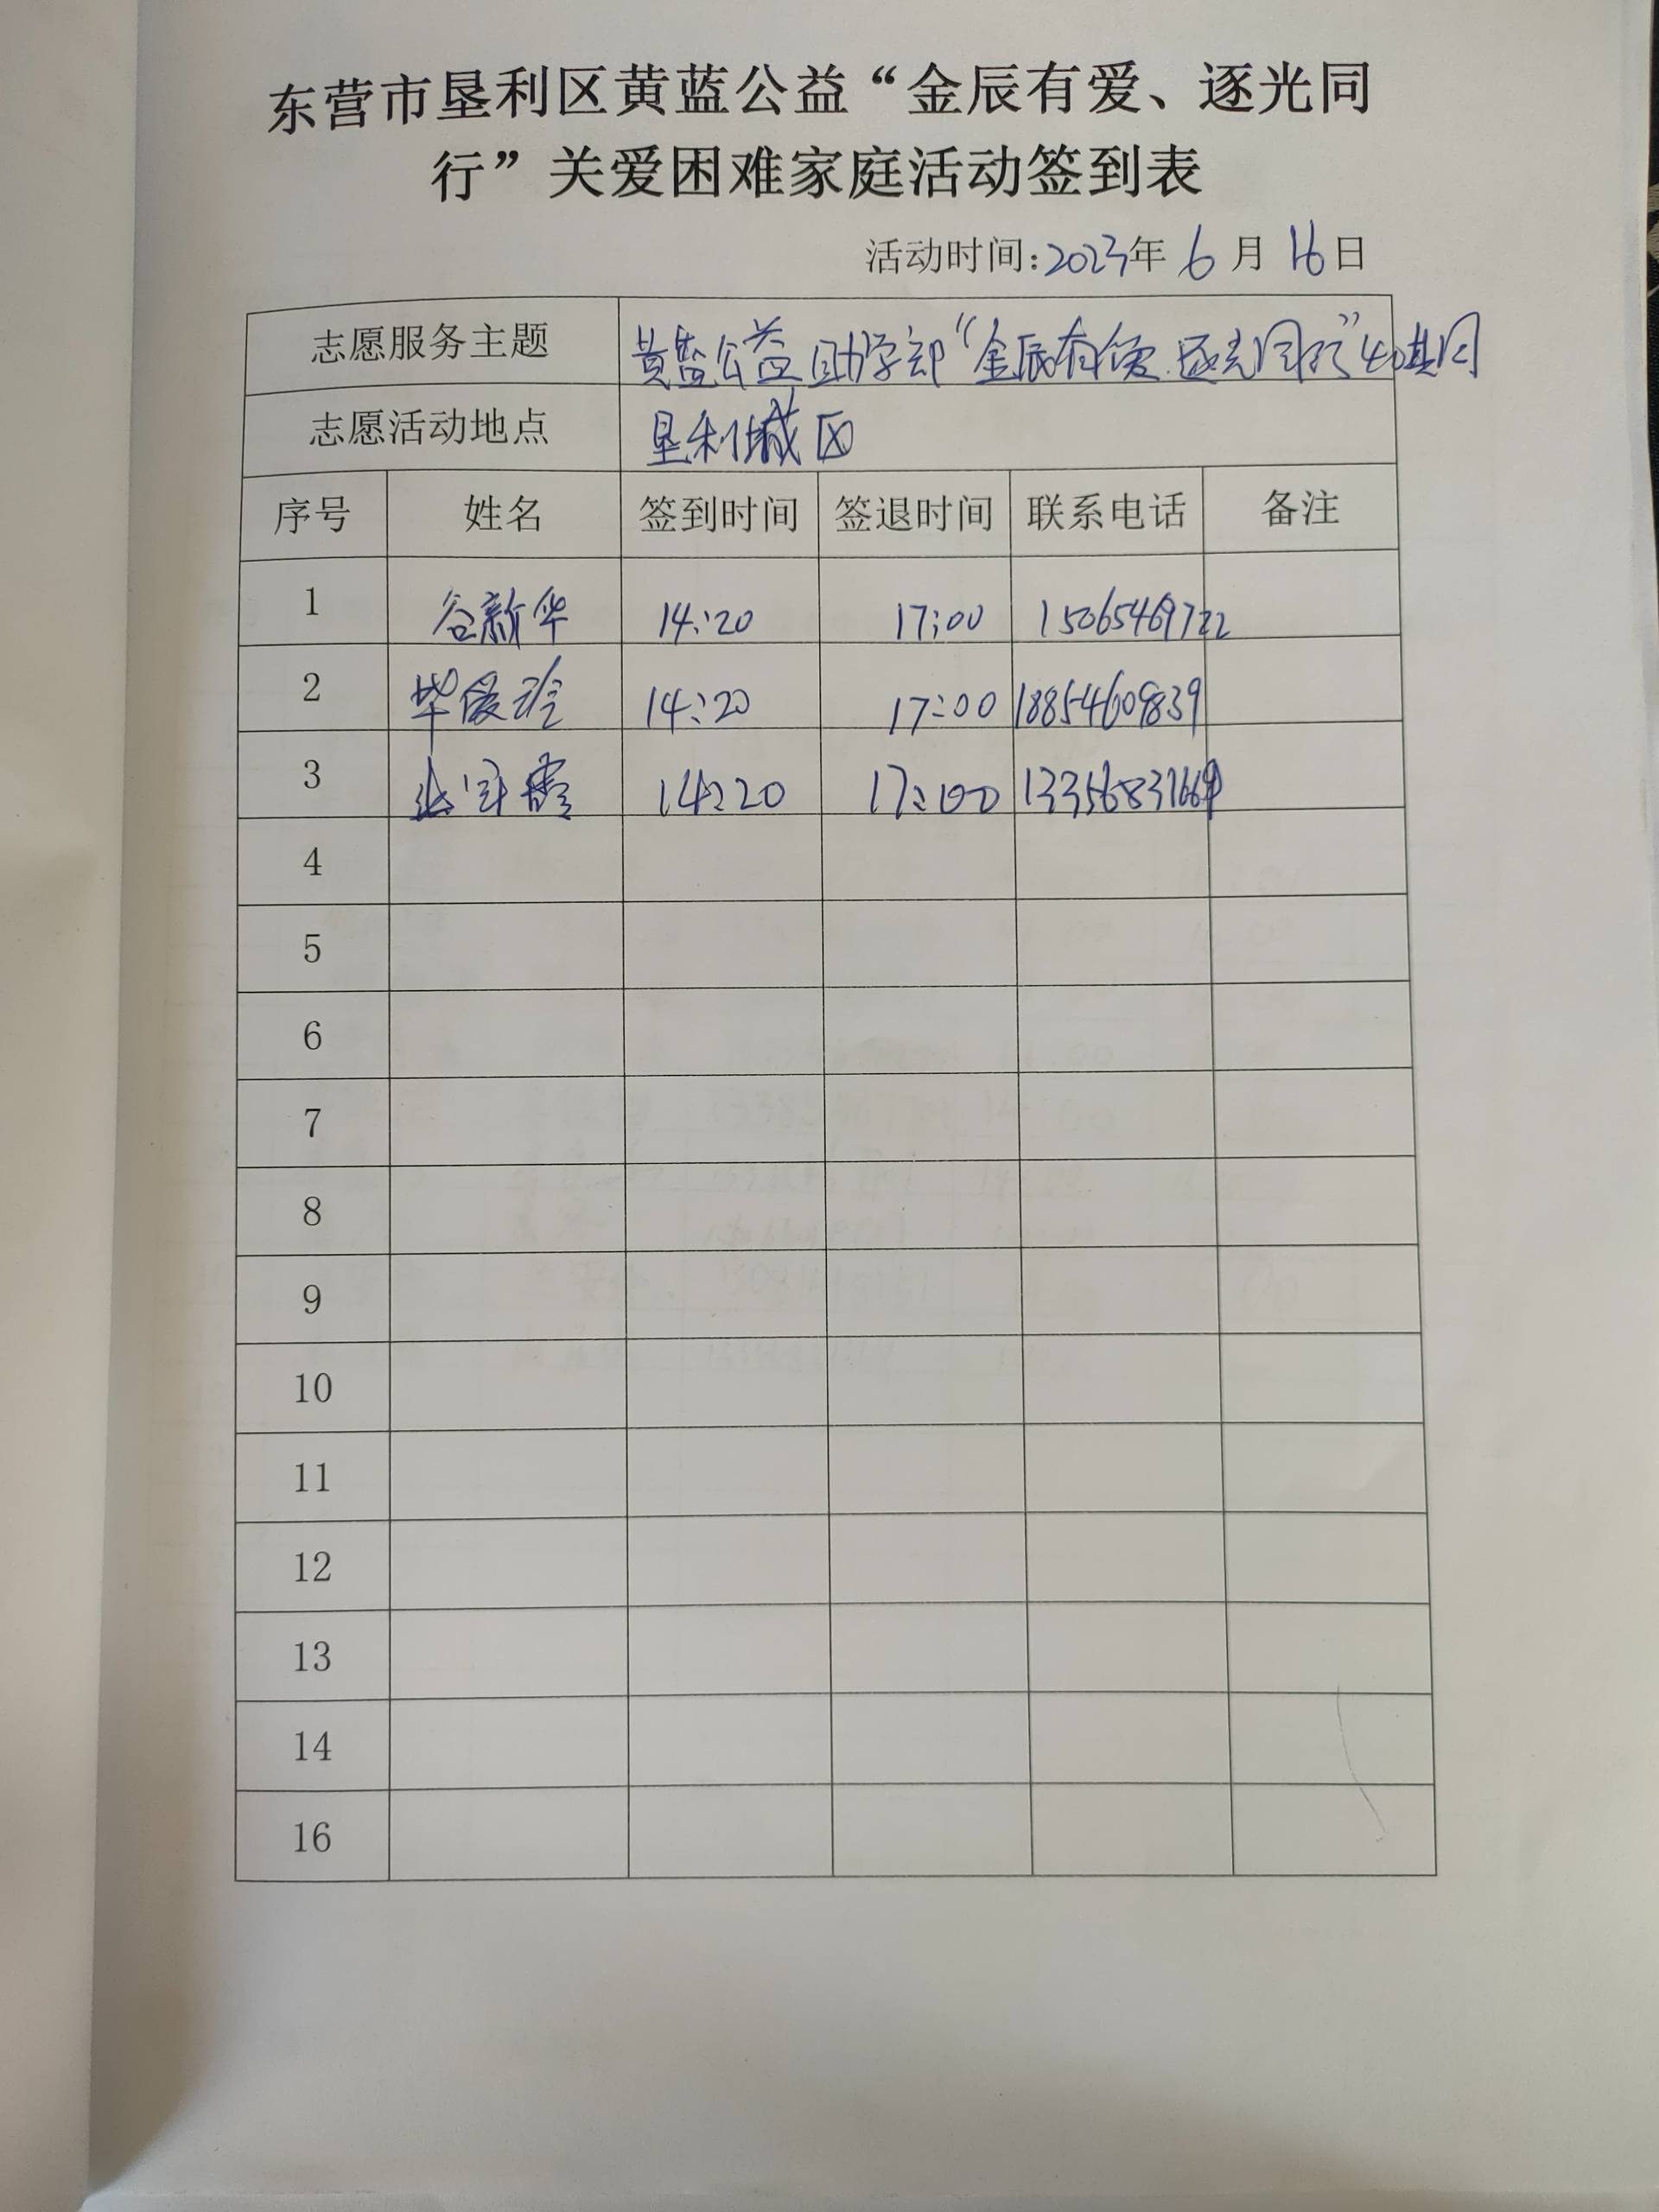 东营市垦利区黄蓝公益“金辰有爱、逐光同
行”关爱困难家庭活动签到表
活动时间:2023年 6 月 16 日
志愿服务主题 黄蓝公益助学部“金辰有爱.逐光同行”40期
志愿活动地点 垦利城区
序号 姓名 签到时间 签退时间 联系电话 备注
1 谷新华 14:20 17:00 15065469722
2 毕爱玲 14:20 17:00 18854609839
3 14:20 17:00
4
5
6
7
8
9
10
11
12
13
14
16